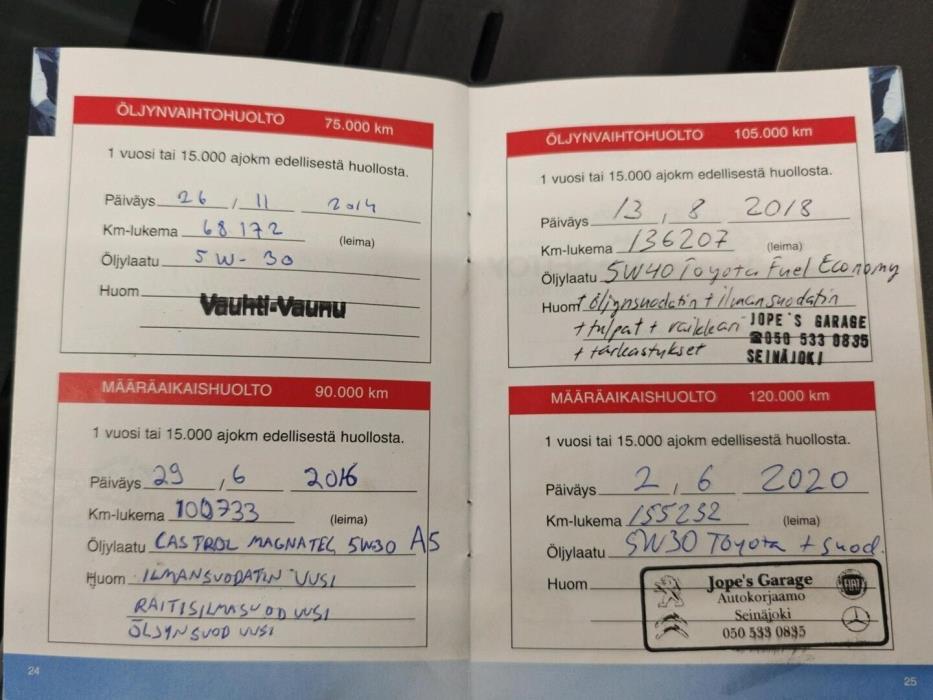 ÖLJYNVAIHTOHUOLTO 75.000 km
1 vuosi tai 15.000 ajokm edellisestä huollosta.
Päiväys 26 / 11 2014
Km-lukema 68.172 (leima)
Öljylaatu 5W-30
Huom
Vauhti-Vaunu
MÄÄRÄAIKAISHUOLTO 90.000 km
1 vuosi tai 15.000 ajokm edellisestä huollosta.
Päiväys 29 / 6 2016
Km-lukema 100733 (leima)
Öljylaatu CASTROL MAGNATEC 5W30 A5
Huom ILMANSUODATIN UUSI
RAITISILMASUOD UUSI
ÖLJYNSUOD UUSI
24
ÖLJYNVAIHTOHUOLTO 105.000 km
1 vuosi tai 15.000 ajokm edellisestä huollosta.
Päiväys 13 / 8 2018
Km-lukema 136207 (leima)
Öljylaatu 5W40 Toyota Fuel Economy
Huom + öljynsuodatin + ilmansuodatin
+ tulpat + raikkaan
+ tarkastukset
JOPE'S GARAGE
☎050 533 0835
SEINÄJOKI
MÄÄRÄAIKAISHUOLTO 120.000 km
1 vuosi tai 15.000 ajokm edellisestä huollosta.
Päiväys 2 / 6 2020
Km-lukema 155232 (leima)
Öljylaatu 5W30 Toyota + suod.
Huom
Jope's Garage
Autokorjaamo
Seinäjoki
050 533 0835
FIAT
25